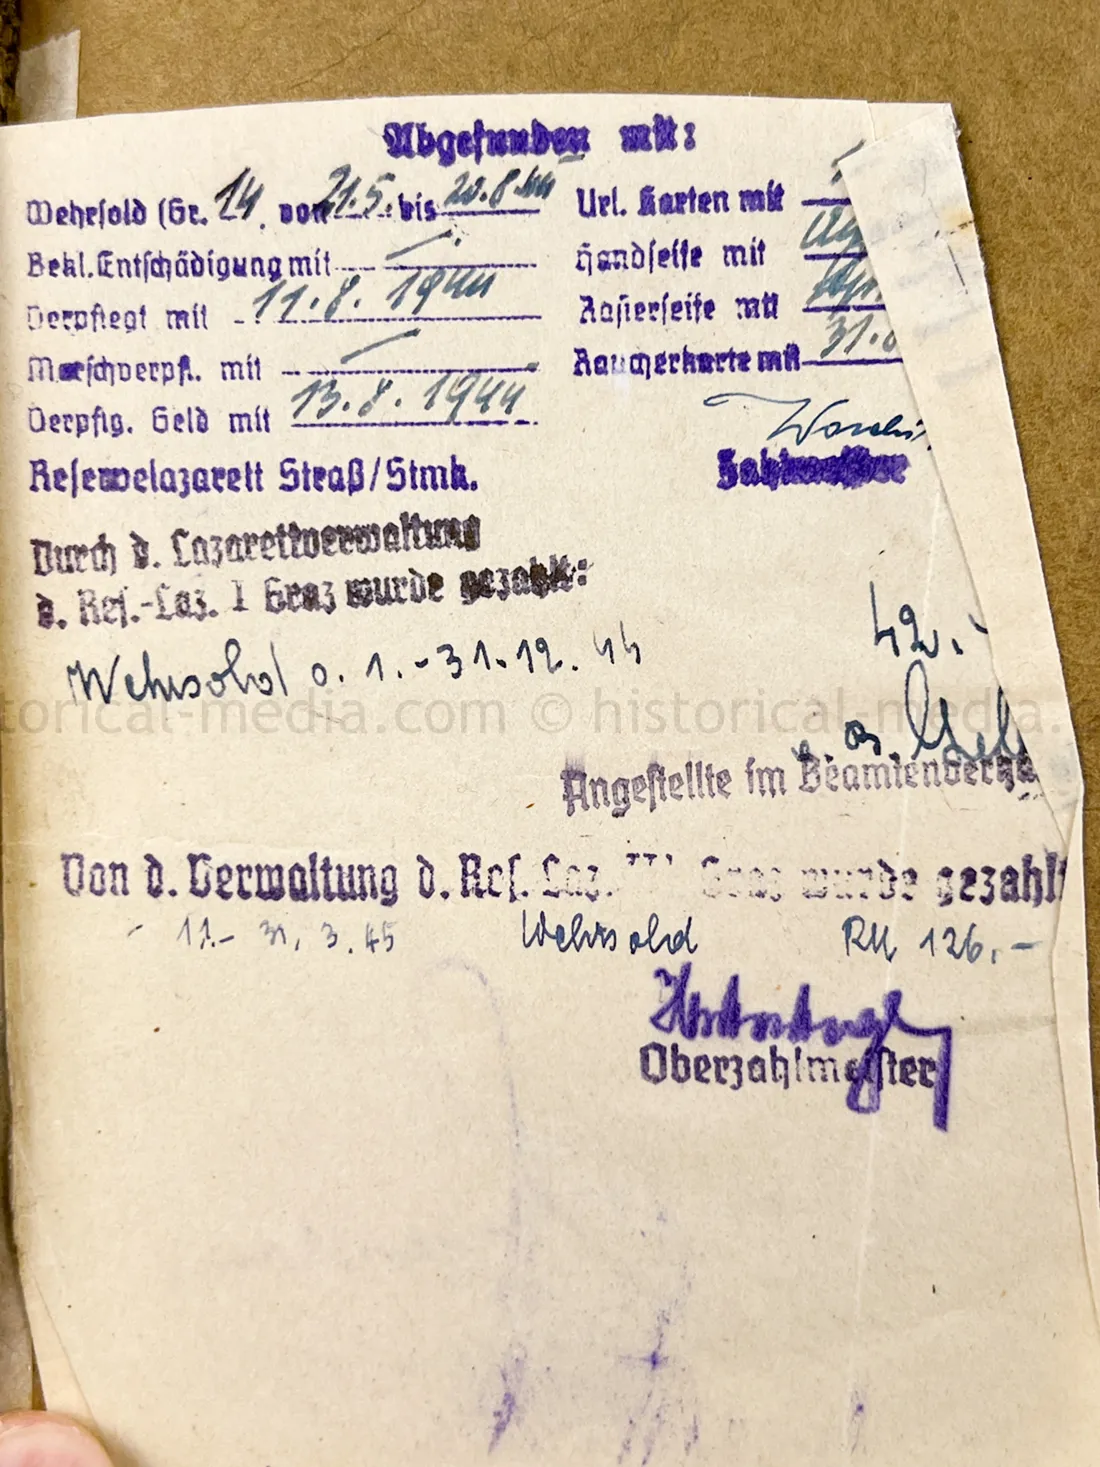 Abgefunden mit:
Wehrsold (Gr. 14. von 21.5. bis 20.8.44
Bekl. Entschädigung mit —
Verpflegt mit 11.8.1944
Marschverpfl. mit —
Verpflg. Geld mit 13.8.1944
Url. Karten mit
Handseife mit
Rasierseife mit
Raucherkarte mit 31.
Reservelazarett Straß/Stmk.
Zahlmeister
Durch d. Lazarettverwaltung
d. Res.-Laz. I Graz wurde gezahlt:
Wehrsold v. 1.-31.12.44 42.-
Angestellte im Beamtenverh
Von d. Verwaltung d. Res. Laz. Graz wurde gezahlt
11.- 31.3.45 Wehrsold RM 126.-
Oberzahlmeister
historical-media.com © historical-media.com